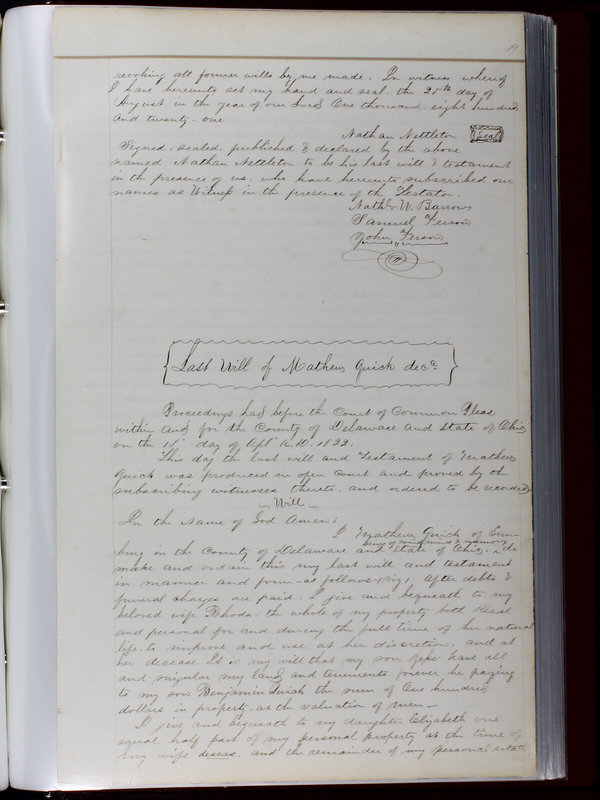 revoking all former wills by me made. In witness whereof
I have hereunto set my hand and seal the 25th day of
August in the year of our Lord One thousand eight hundred
and twenty-one
Nathan Nettleton Seal
Signed, sealed, published & declared by the above
named Nathan Nettleton to be his last will & testament
in the presence of us, who have hereunto subscribed our
names as Witness in the presence of the Testator.
Nathl W. Barrows
Samuel Ferson
John Ferson
Last Will of Mathew Quick decd.
Proceedings had before the Court of Common Pleas
within and for the County of Delaware and State of Ohio
on the day of Apl A.D. 1822.
This day the last will and Testament of Mathew
Quick was produced in open court and proved by th
subscribing witnesses thereto, and ordered to be recorded
~ Will ~
In the Name of God Amen;
I Mathew Quick of Sun-
being of sound mind & memory
bury in the County of Delaware and State of Ohio, do
make and ordain this my last will and testament
in manner and form as follows, viz, After debts &
funeral charges are paid. I give and bequeath to my
beloved wife Rhoda the whole of my property both Real
and personal for and during the full time of her natural
life, to improve and use at her discretion, and at
her decease It is my will that my son have all
and singular my lands and tenements forever he paying
to my son Benjamin Quick the sum of One hundred
dollars in property, as the valuation of men
I give and bequeath to my daughter Elizabeth one
equal half part of my personal property at the time of
my wife deseas, and the remainder of my personal estate